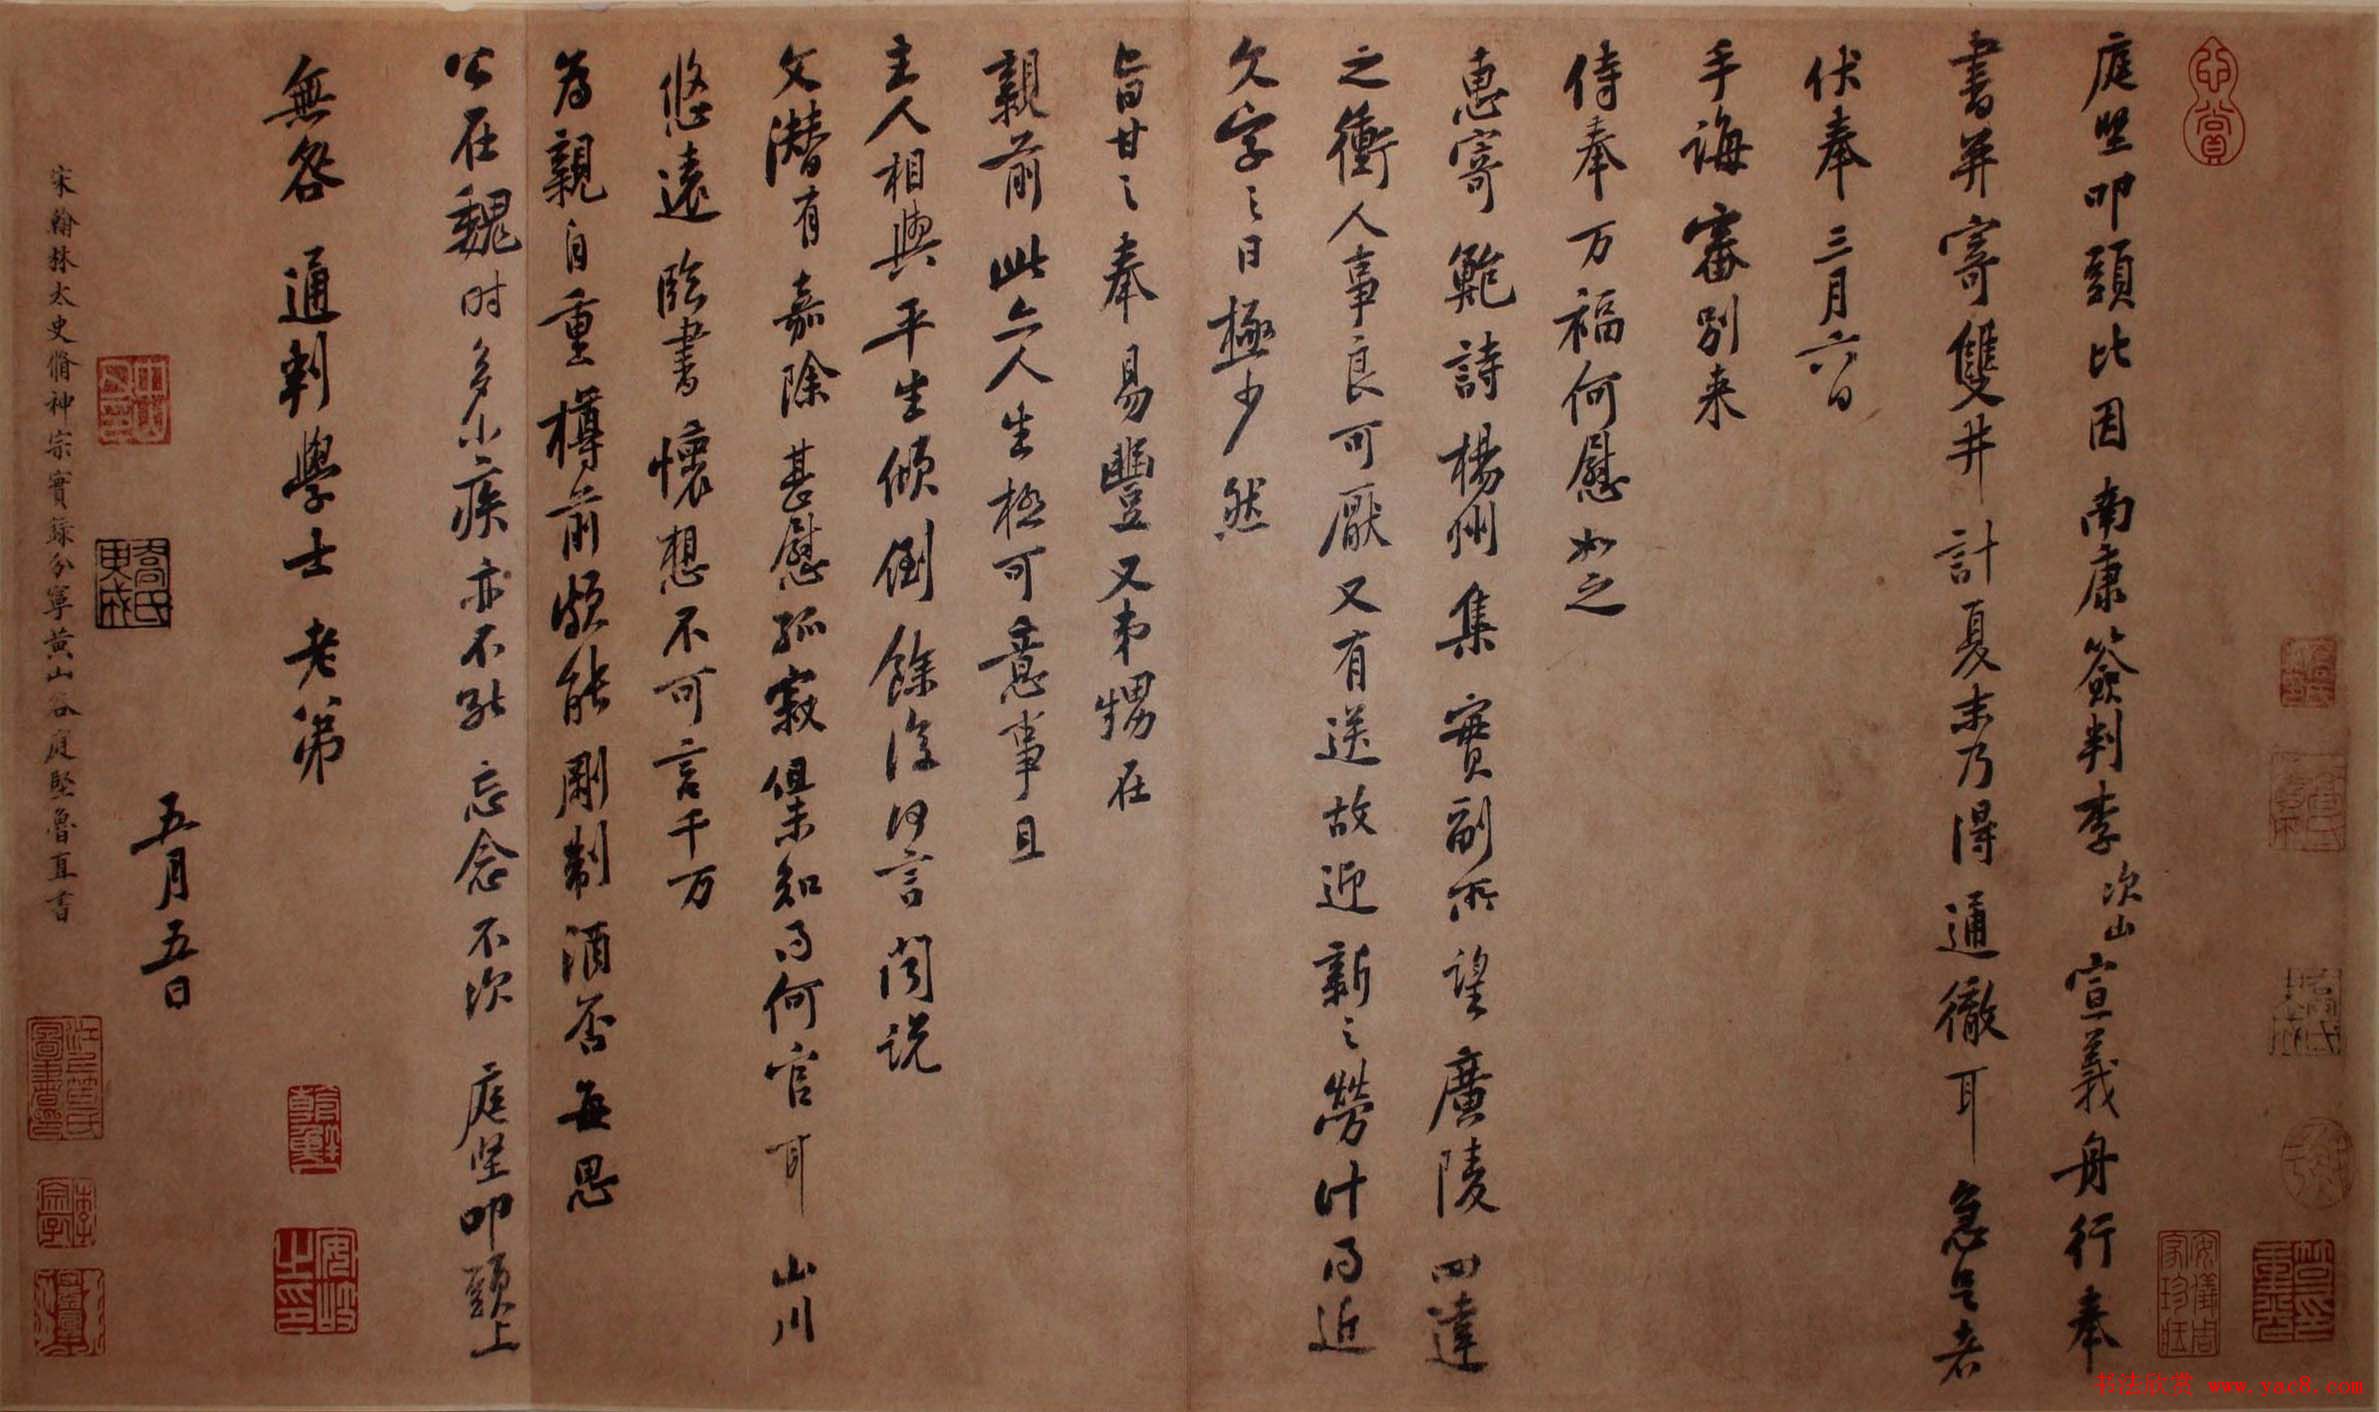 庭堅叩頭比因南康簽判李次山宣義舟行奉
書并寄雙井計夏末乃得通徹耳急足者
伏奉三月六日
手誨審別来
侍奉万福何慰如之
惠寄鮑詩楊州集實副所望廣陵四達
之衝人事良可厭又有送故迎新之勞計得近
文字之日極少然
旨甘之奉易豐又弟甥在
親前此亦人生極可意事且
主人相與平生傾倒餘復何言聞説
文潜有嘉除甚慰孤寂但未知得何官耳山川
悠遠臨書懷想不可言千万
為親自重樽前頗能剛制酒否每思
公在魏时多小疾亦不能忘念不次庭堅叩頭上
無咎通判學士老弟
五月五日
宋翰林太史脩神宗實録分寧黃山谷庭堅魯直書
心賞
安儀周家珍藏
安岐之印
喬氏
书法欣赏 www.yac8.com